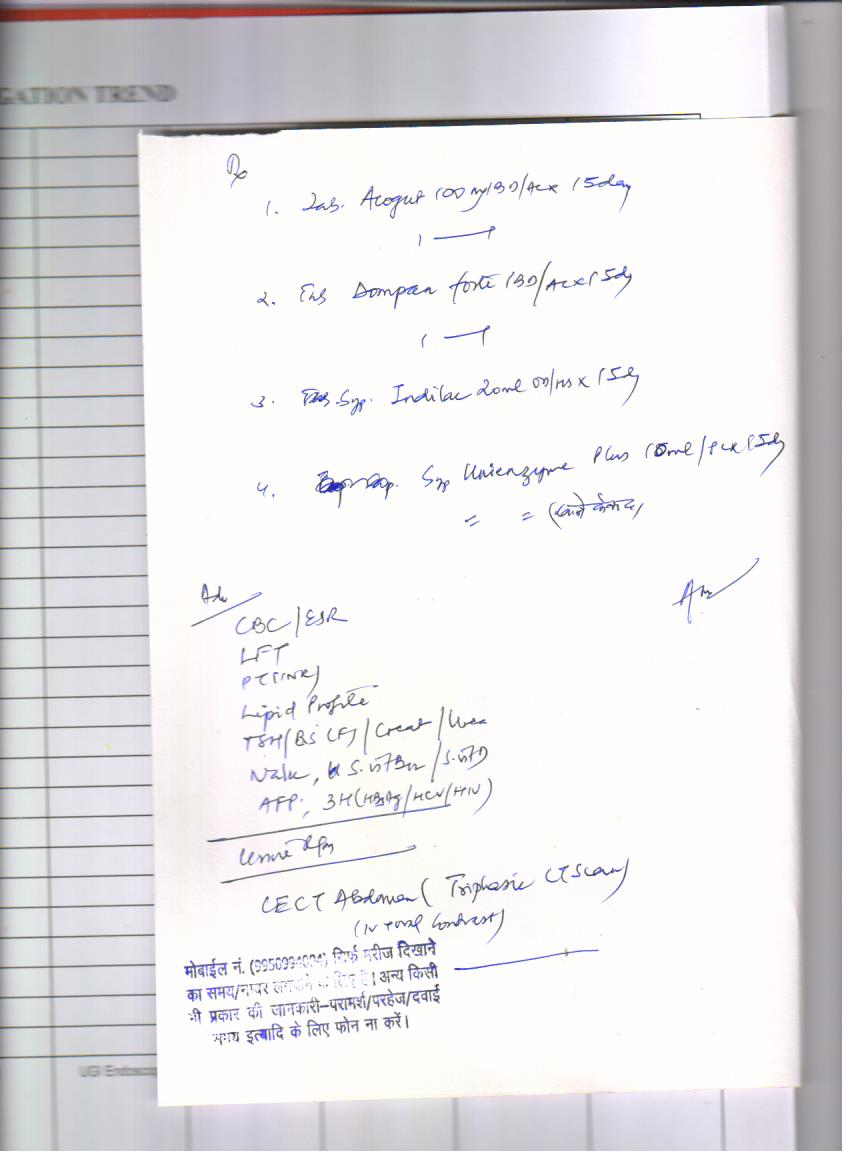 GATION TREND
Rx
1. Tab. Acogut 100 mg BD/AC x 15 day
1
2. Tab Dompan forte BD/AC x 15 dy
1
3. Syp. Indilac 20ml OD/HS x 15 dy
4. Syp Unienzyme Plus 10ml/PC x 15 dy
= = (खाने के बाद)
Adv
CBC/ESR
LFT
PT(INR)
Lipid Profile
TSH/BS (F)/Creat/Urea
Na/K,
AFP, 3H(HBsAg/HCV/HIV)
Urine
CECT Abdomen (Triphasic CT Scan)
(IV + oral Contrast)
मोबाईल नं. सिर्फ मरीज दिखाने
का समय/नम्बर लगवाने के लिए है। अन्य किसी
भी प्रकार की जानकारी-परामर्श/परहेज/दवाई
समय इत्यादि के लिए फोन ना करें।
UGI Endoscop